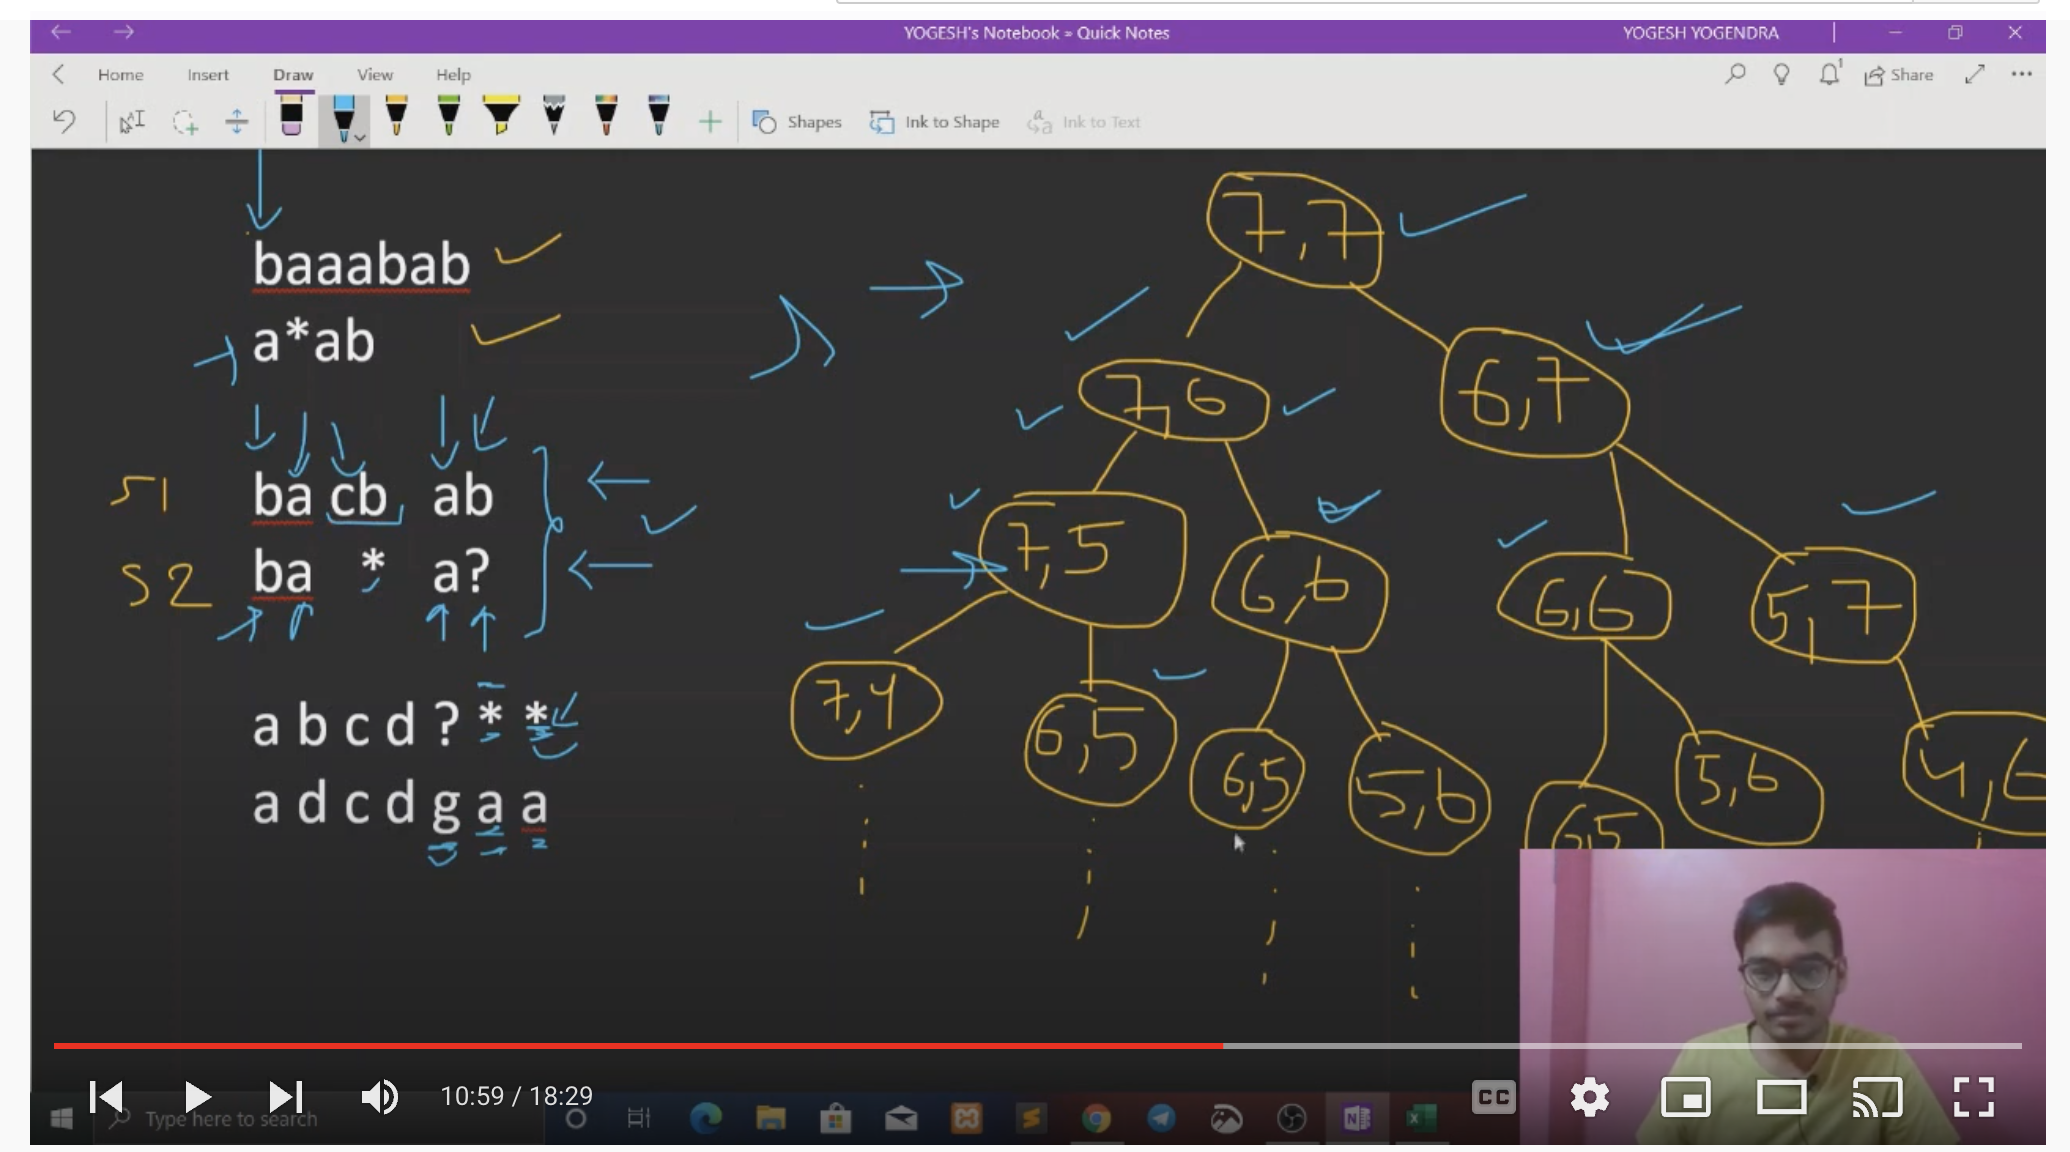 YOGESH's Notebook » Quick Notes
YOGESH YOGENDRA
Home Insert Draw View Help
1
Share
Shapes
Ink to Shape
Ink to Text
baaabab
a*ab
S1 ba cb ab
S2 ba * a?
a b c d ? * *
a d c d g a a
7,7
7,6
6,7
7,5
6,6
6,6
5,7
7,4
6,5
6,5
5,6
6,5
5,6
4,6
10:59 / 18:29
CC
Type here to search